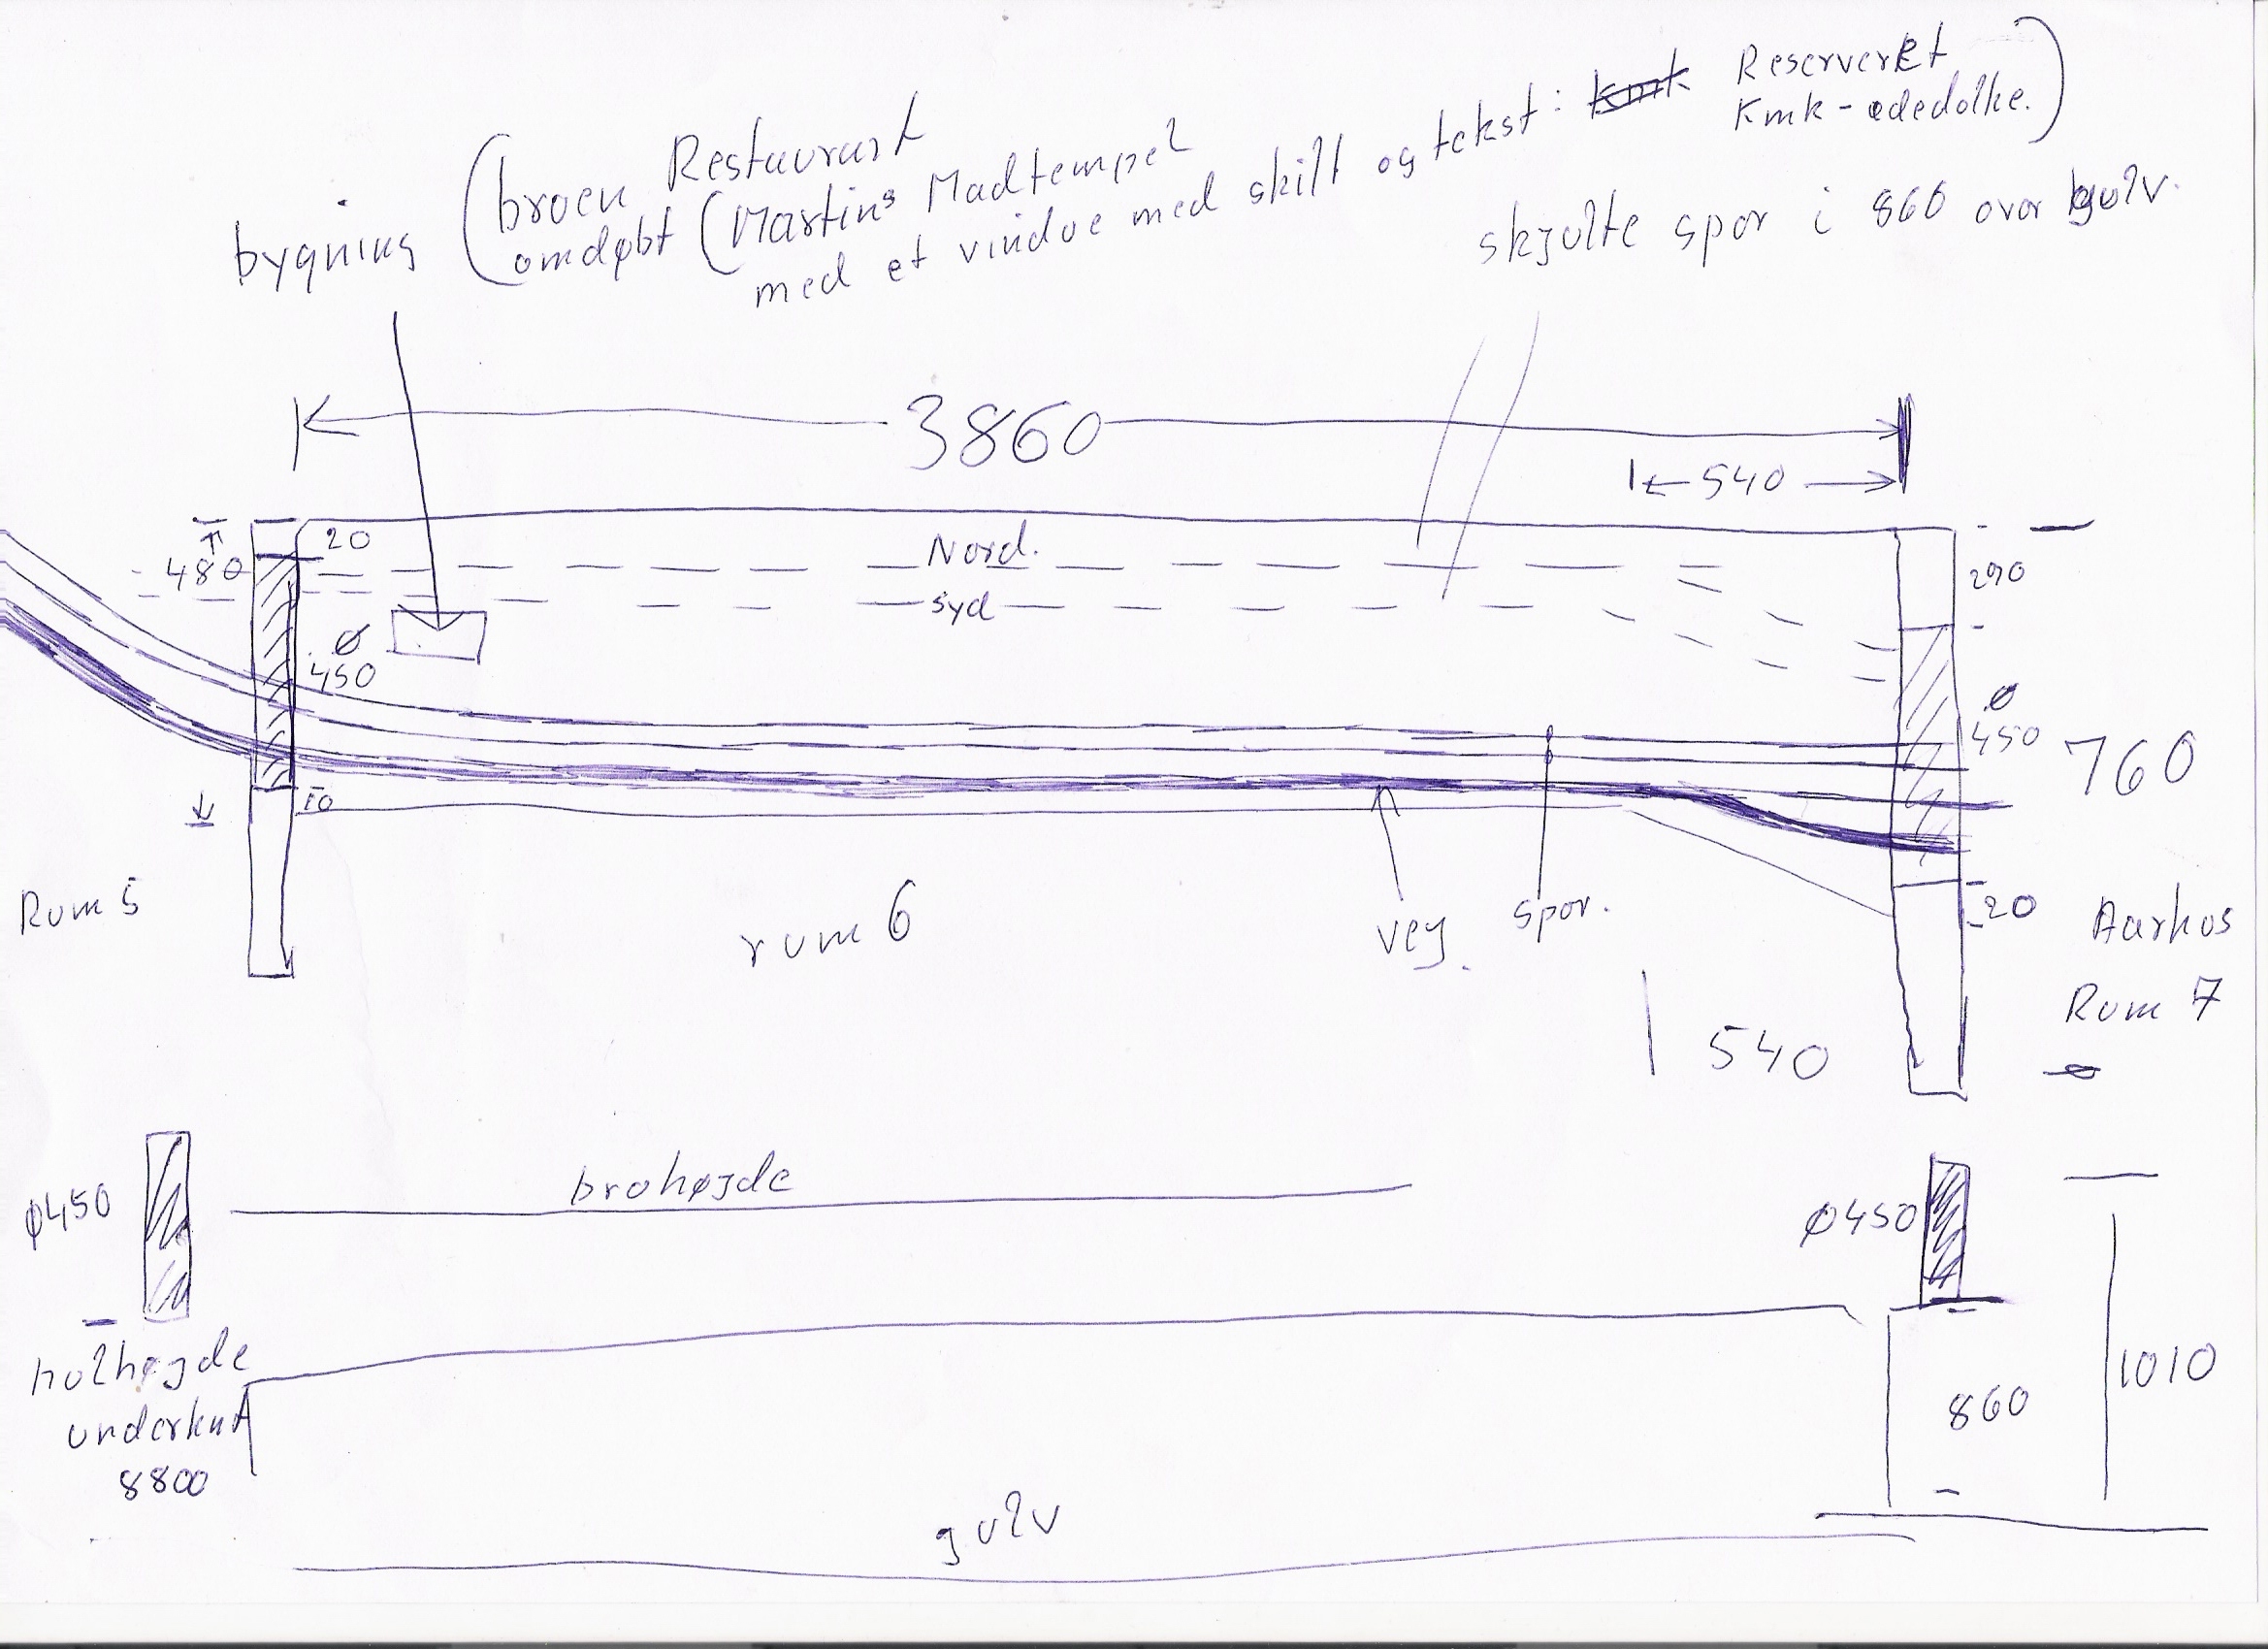 Reserveret
kmk
Kmk-ædedolke.)
bygning
(broen Restaurant
omdøbt (Martins Madtempel
med et vindue med skilt og tekst:
skjulte spor i 860 over gulv.
3860
540
20
Nord.
480
290
syd
ø
450
ø
450
760
10
Rum 5
rum 6
vej.
spor.
20
Aarhus
Rum 7
540
brohøjde
ø450
ø450
hulhøjde
underkant
8800
860
1010
gulv